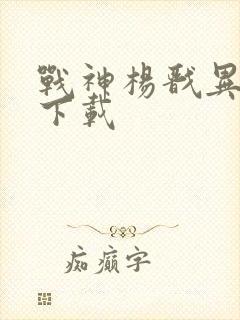 戰神楊戩異
下載
痴癲字